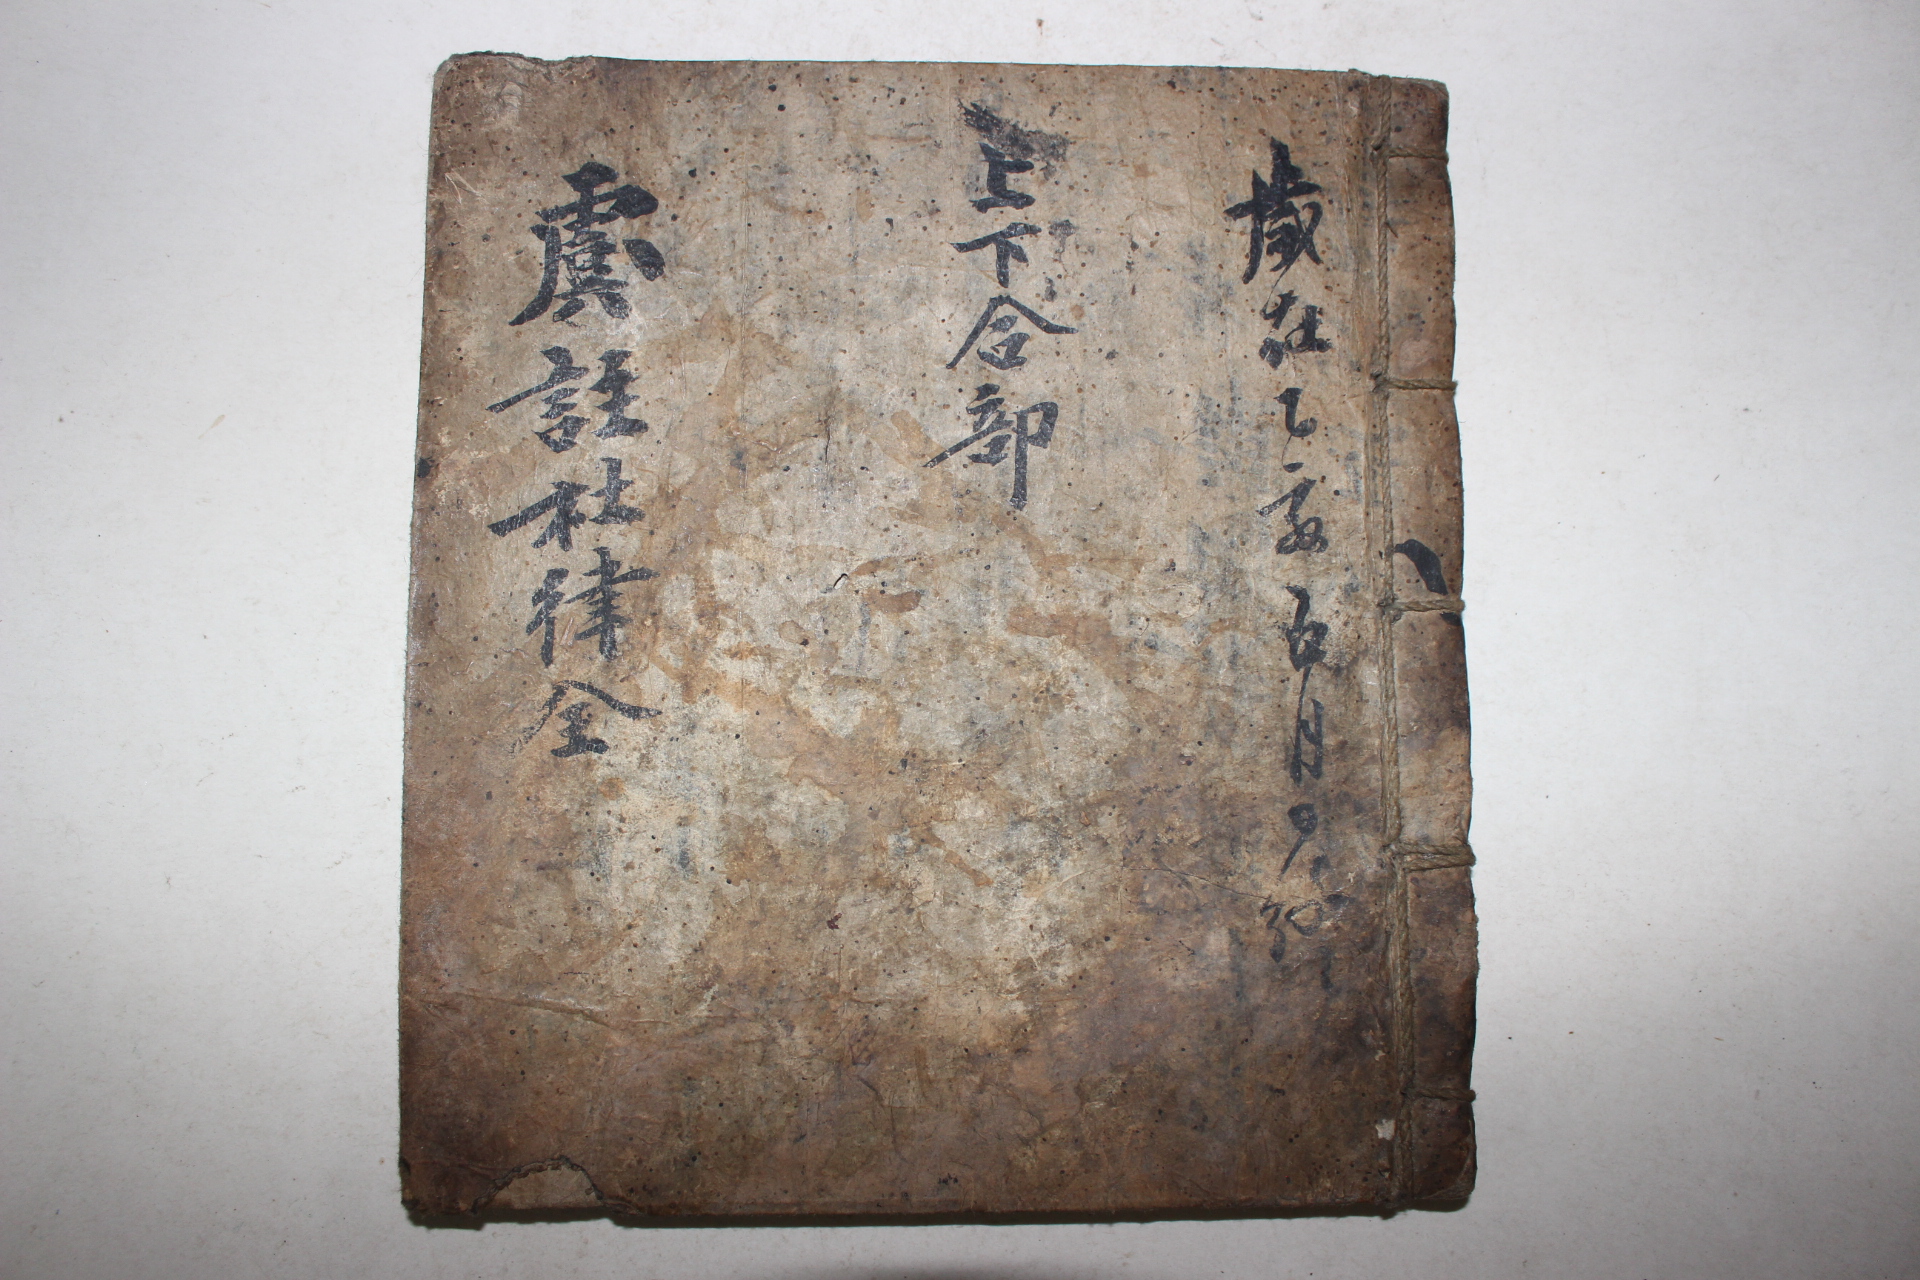 歲在乙亥五月
上下合部
虞註杜律全